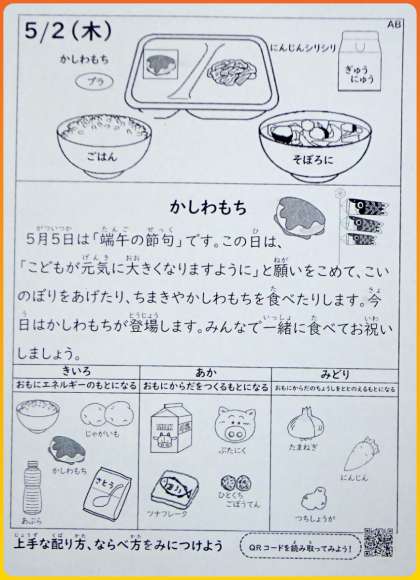 5/2(木)
AB
かしわもち
プラ
にんじんシリシリ
ぎゅう
にゅう
ごはん
そぼろに
かしわもち
5月5日は「端午の節句」です。この日は、
「こどもが元気に大きくなりますように」と願いをこめて、こい
のぼりをあげたり、ちまきやかしわもちを食べたりします。今
日はかしわもちが登場します。みんなで一緒に食べてお祝い
しましょう。
きいろ
おもにエネルギーのもとになる
あか
おもにからだをつくるもとになる
みどり
おもにからだのちょうしをととのえるもとになる
じゃがいも
かしわもち
あぶら
さとう
ぶたにく
ツナフレーク
ひとくち
ごぼうてん
たまねぎ
にんじん
つちしょうが
上手な配り方、ならべ方をみにつけよう
QRコードを読み取ってみよう!